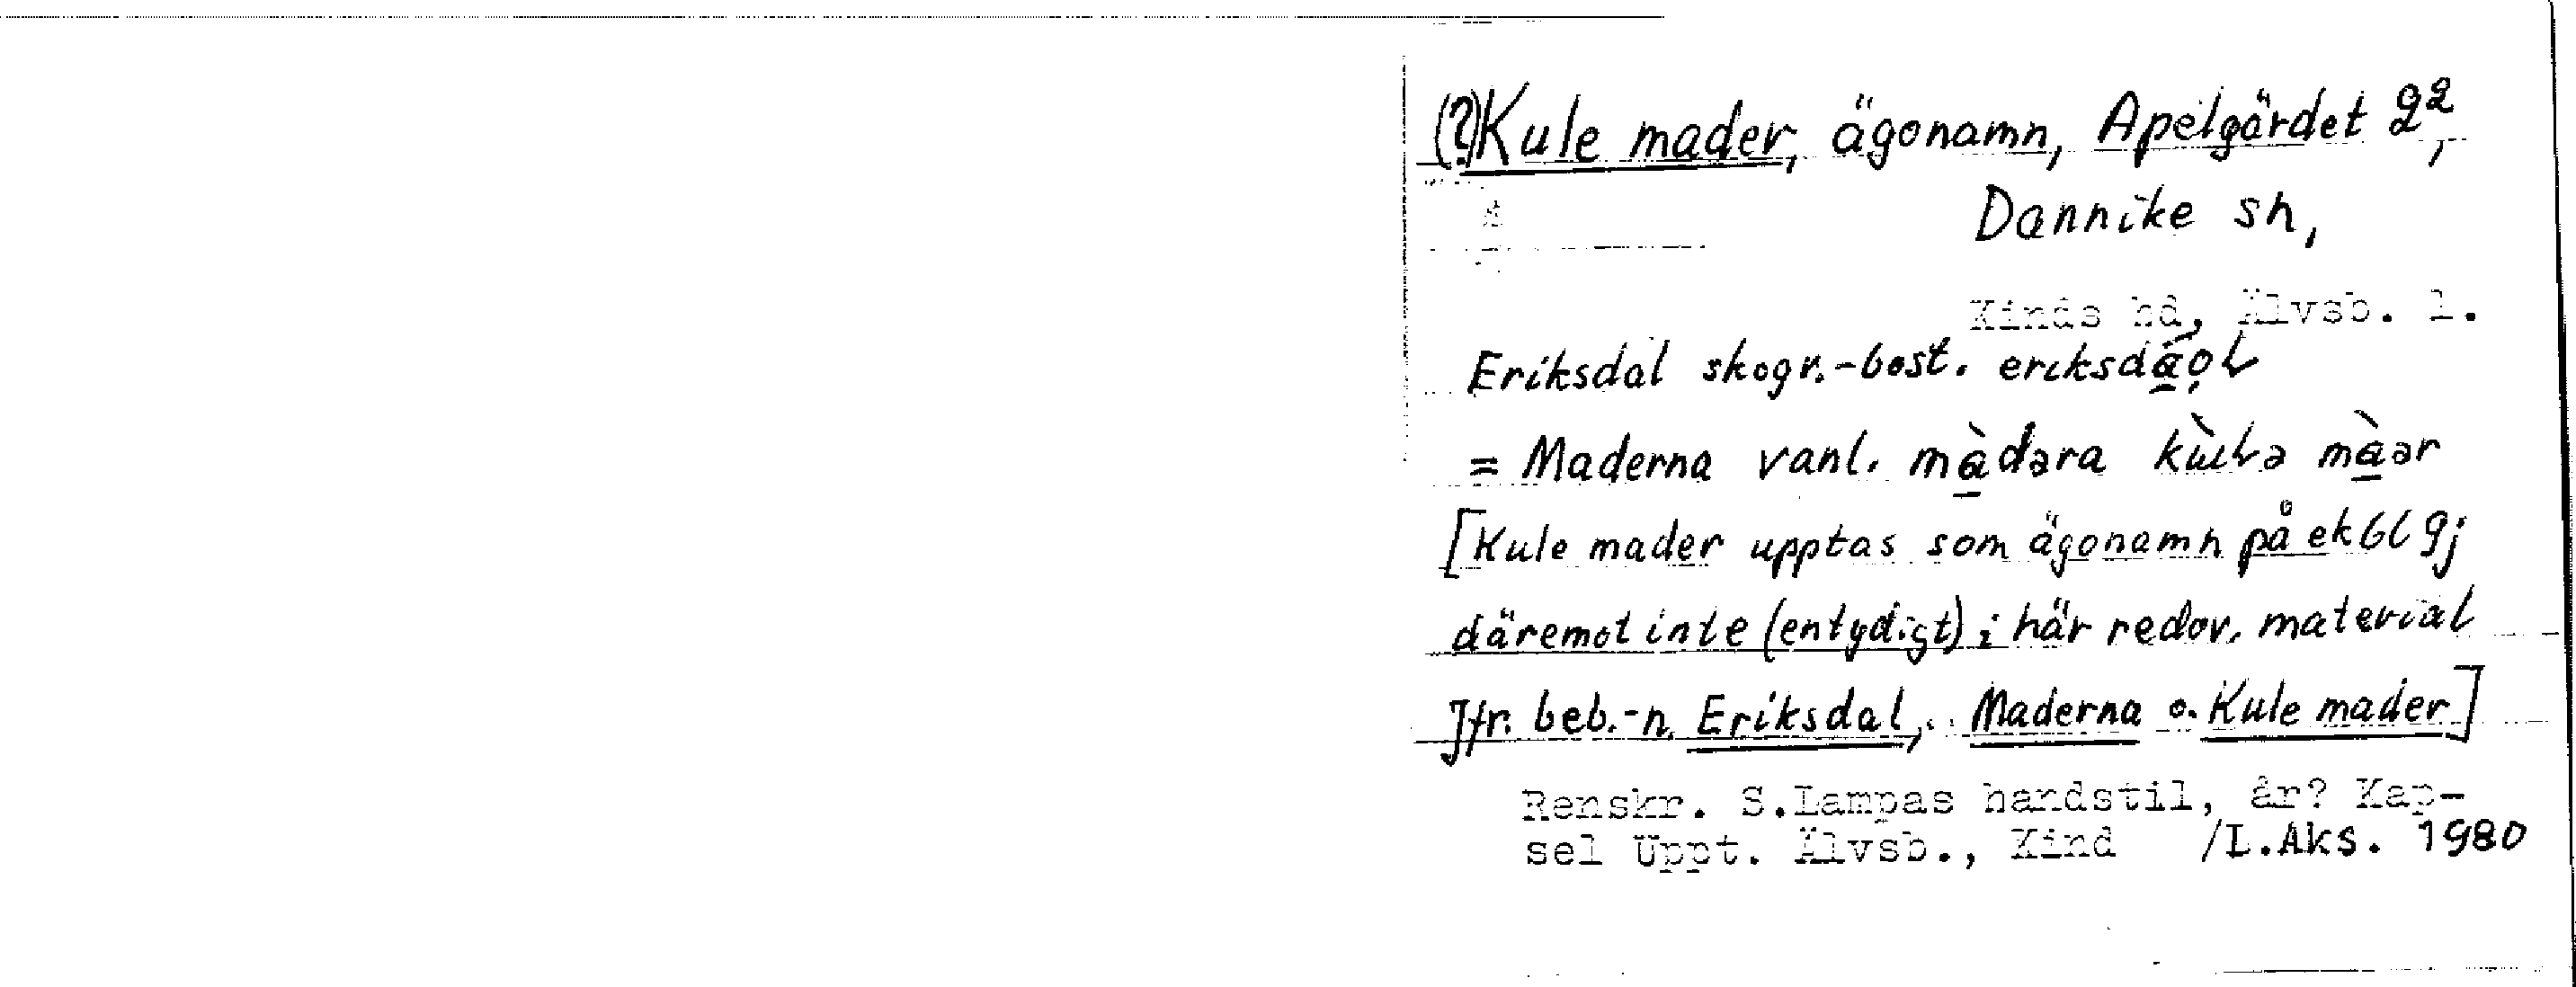 (?)Kule mader, ägonamn, Apelgärdet 2²,
Dannike sn,
Kinds hd, Älvsb. l.
Eriksdal skogv.-bost.
= Maderna vanl.
[Kule mader upptas som ägonamn på ekbl 9j
däremot inte (entydigt) i här redov. material
Jfr. beb.-n. Eriksdal, Maderna o. Kule mader]
Renskr. S.Lampas handstil, år? Kap-
sel Uppt. Älvsb., Kind /L.Aks. 1980